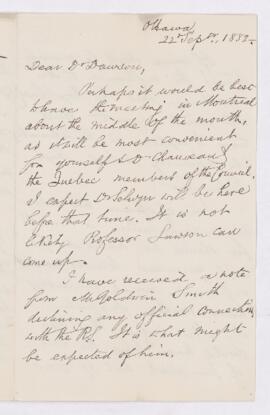 Ottawa
22nd Septr. 1882.
Dear Dr Dawson,
Perhaps it would be best
to have the meeting in Montreal
about the middle of the month,
as it will be most convenient
for yourself & Dr Chauveau &
the Quebec members of the Council.
I expect Dr Selwyn will be here
before that time. It is not
likely Professor Lawson can
come up.
I have received a note
from Mr Goldwin Smith
declining any official connection
with the R.S. It is what might
be expected of him.